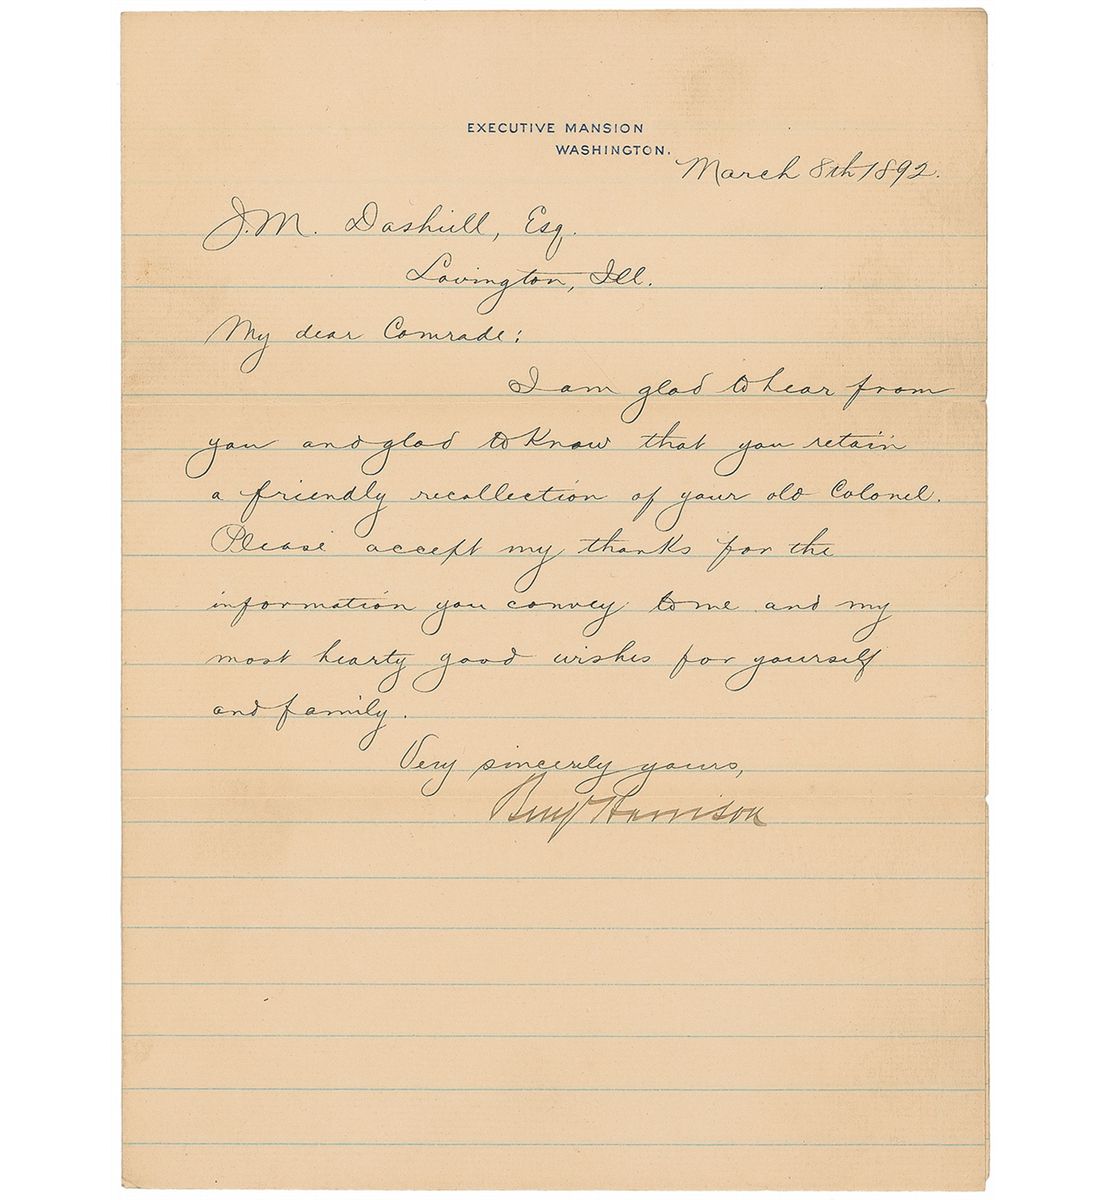 EXECUTIVE MANSION
WASHINGTON.
March 8th 1892.
J. M. Dashiell, Esq.
Lovington, Ill.
My dear Comrade:
I am glad to hear from
you and glad to know that you retain
a friendly recollection of your old Colonel.
Please accept my thanks for the
information you convey to me and my
most hearty good wishes for yourself
and family.
Very sincerely yours,
Benj Harrison